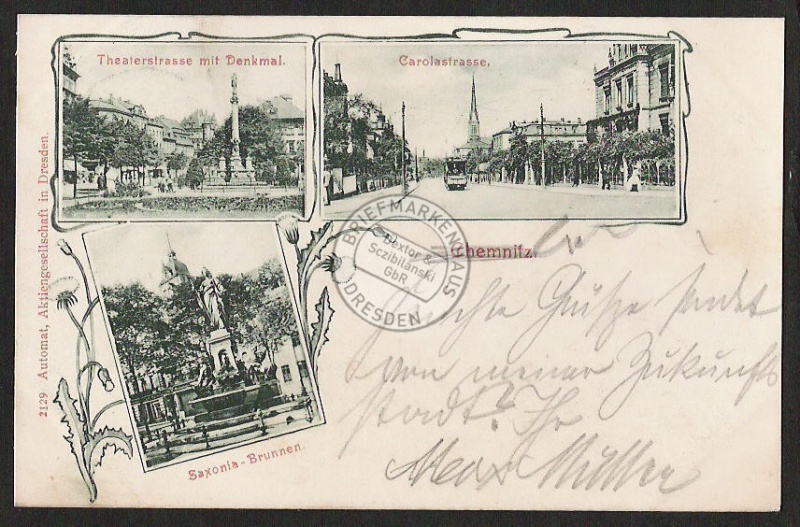 Theaterstrasse mit Denkmal.
Carolastrasse.
Chemnitz.
Saxonia-Brunnen.
2129 Automat, Aktiengesellschaft in Dresden.
BRIEFMARKENHAUS
Dextor &
Sczibilanski
GbR
DRESDEN
Grüße sendet
von meiner Zukunfts
stadt? Ihr
Max Müller